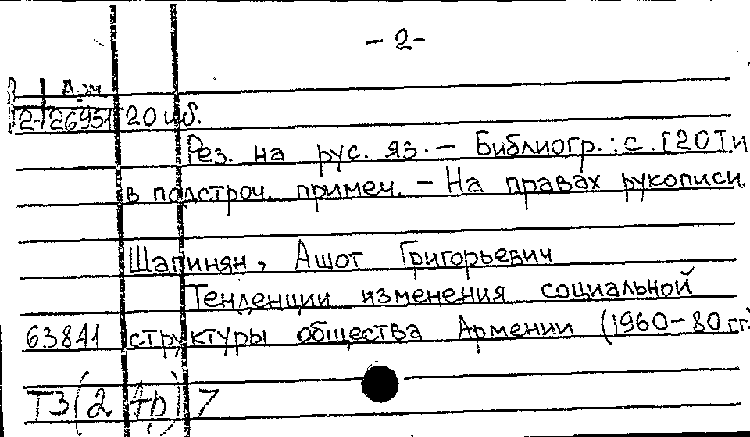 - 2-
Арм
2-26931 20 см.
Рез. на рус. яз. - Библиогр.: с. [20] и
в подстроч. примеч. - На правах рукописи
Шагинян, Ашот Григорьевич
Тенденции изменения социальной
63841 структуры общества Армении (1960-80 гг.)
Т3(2Ар)7